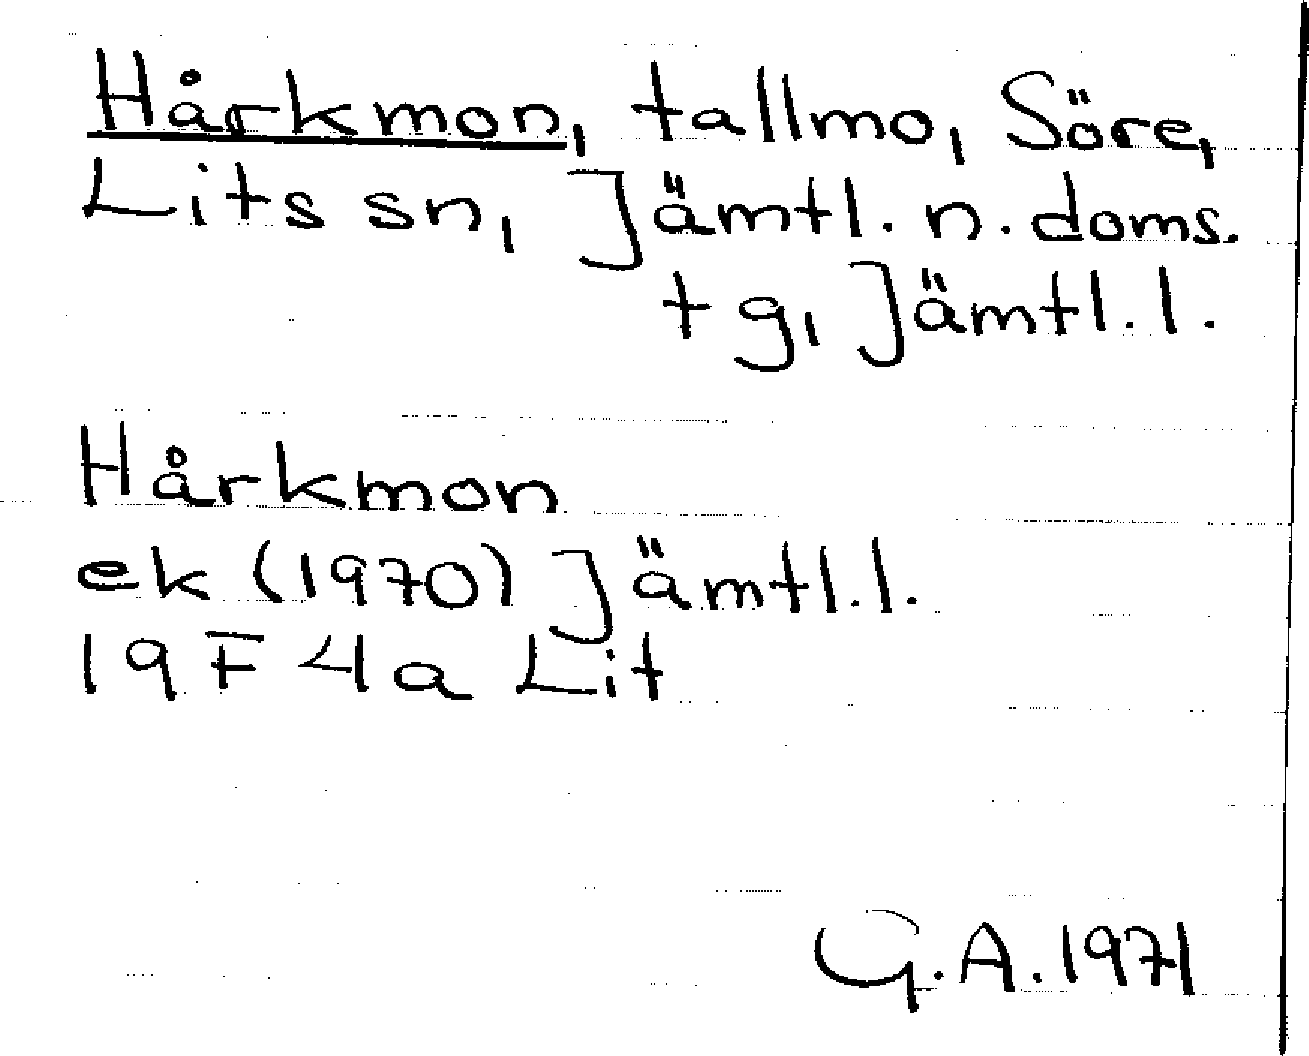 Hårkmon, tallmo, Söre,
Lits sn, Jämtl. n. doms.
tg, Jämtl. l.
Hårkmon
ek (1970) Jämtl. l.
19F 4a Lit
G.A. 1971